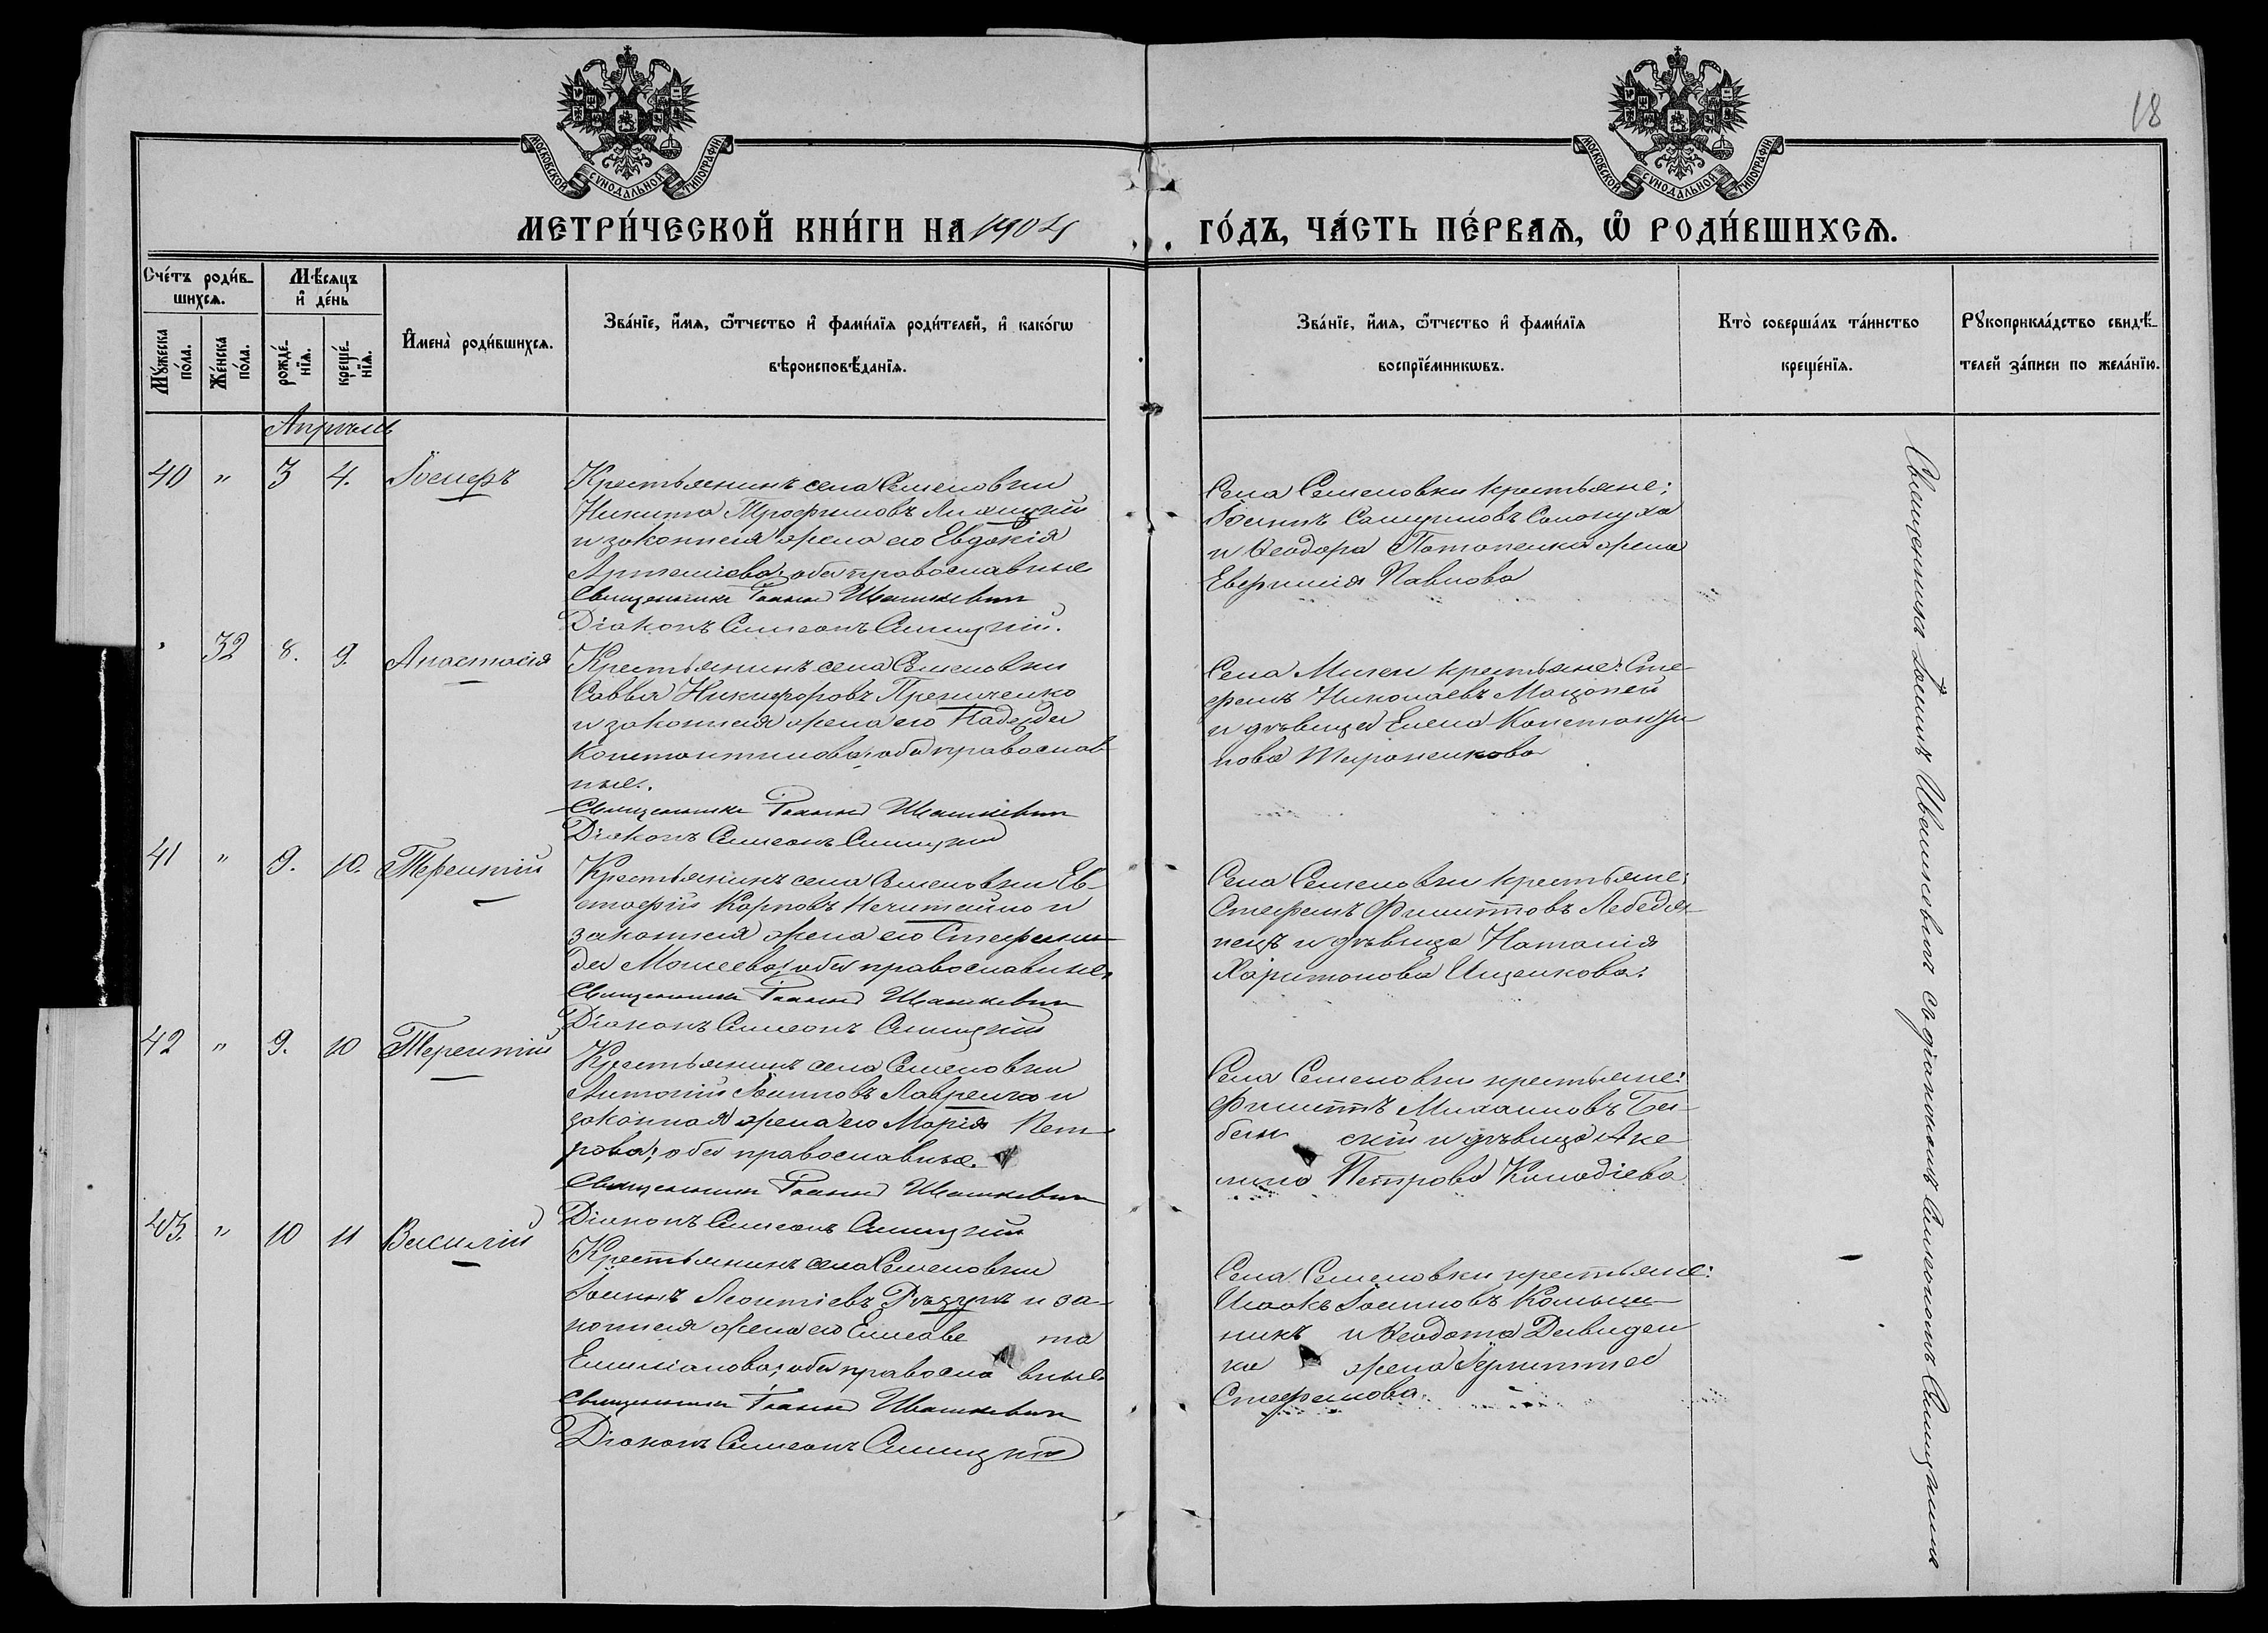 18
МОСКОВСКОЙ СѴНОДАЛЬНОЙ ТИПОГРАФІИ
МОСКОВСКОЙ СѴНОДАЛЬНОЙ ТИПОГРАФІИ
МЕТРИ́ЧЕСКОЙ КНИ́ГИ НА 1904
ГО́ДЪ, ЧА́СТЬ ПЕ́РВАЯ, Ѡ РОДИ́ВШИХСЯ.
Сче́тъ роди́в-
шихся.
Мꙋ́жеска по́ла.
Же́нска по́ла.
Мѣ́сяцъ
и҆ де́нь
рожде́-
нїя.
креще́-
нїя.
И҆мена̀ роди́вшихся.
Зва́нїе, и҆́мя, ѻ҆́тчество и҆ фами́лїя роди́телей, и҆ како́гѡ
вѣроисповѣ́данїя.
Зва́нїе, и҆́мя, ѻ҆́тчество и҆ фами́лїя
воспрїе́мникѡвъ.
Кто̀ соверша́лъ та́инство
креще́нїя.
Рꙋкоприкла́дство свидѣ́-
телей за́писи по жела́нїю.
Апрѣль
40 " 3 4. Іосифъ
Крестьянинъ села Семеновки
Никита Трофимовъ
и законная жена его Евдокія
Артеміева; оба православные
Священникъ Іоаннъ Ивашкевич
Діаконъ Симеонъ Синицкій.
Села Семеновки крестьяне:
Іоаннъ Солопуха
и Ѳеодора Потопенка жена
Евфимія Павлова
" 32 8. 9. Анастасія
Крестьянинъ села Семеновки
Савва Никифоровъ
и законная жена его Надежда
Константинова; оба православ-
ные.
Священникъ Іоаннъ Ивашкевич
Діаконъ Симеонъ Синицкій
Села крестьяне: Сте-
фанъ Николаевъ Мацопей
и дѣвица Елена Константи-
нова Мироненкова
41 " 9. 10. Терентій
Крестьянинъ села Семеновки Ев-
стафій Карповъ Нечитайло и
законная жена его Стефани-
да Моисеева; оба православные
Священникъ Іоаннъ Ивашкевич
Діаконъ Симеонъ Синицкій
Села Семеновки крестьяне:
Стефанъ Филипповъ Лебедя-
нецъ и дѣвица Наталія
Харитонова Ищенкова.
42 " 9. 10 Терентій
Крестьянинъ села Семеновки
Антоній Іоанновъ Лавренко и
законная жена его Марія Пет-
рова; оба православные.
Священникъ Іоаннъ Ивашкевич
Діаконъ Симеонъ Синицкій
Села Семеновки крестьяне:
Филиппъ Михаиловъ
скій и дѣвица Аке-
лина Петрова
43. " 10 11 Василій
Крестьянинъ села Семеновки
Іоаннъ Леонтіевъ и за-
конная жена его Елисаве та
Емиліанова; оба правосла вные
Священникъ Іоаннъ Ивашкевич
Діаконъ Симеонъ Синицкій
Села Семеновки крестьяне:
Исаакъ Іоанновъ
никъ и Ѳеодота Давиден
ка жена
Стефанова.
Священникъ Іоаннъ Ивашкевичъ съ діакономъ Симеономъ Синицкимъ